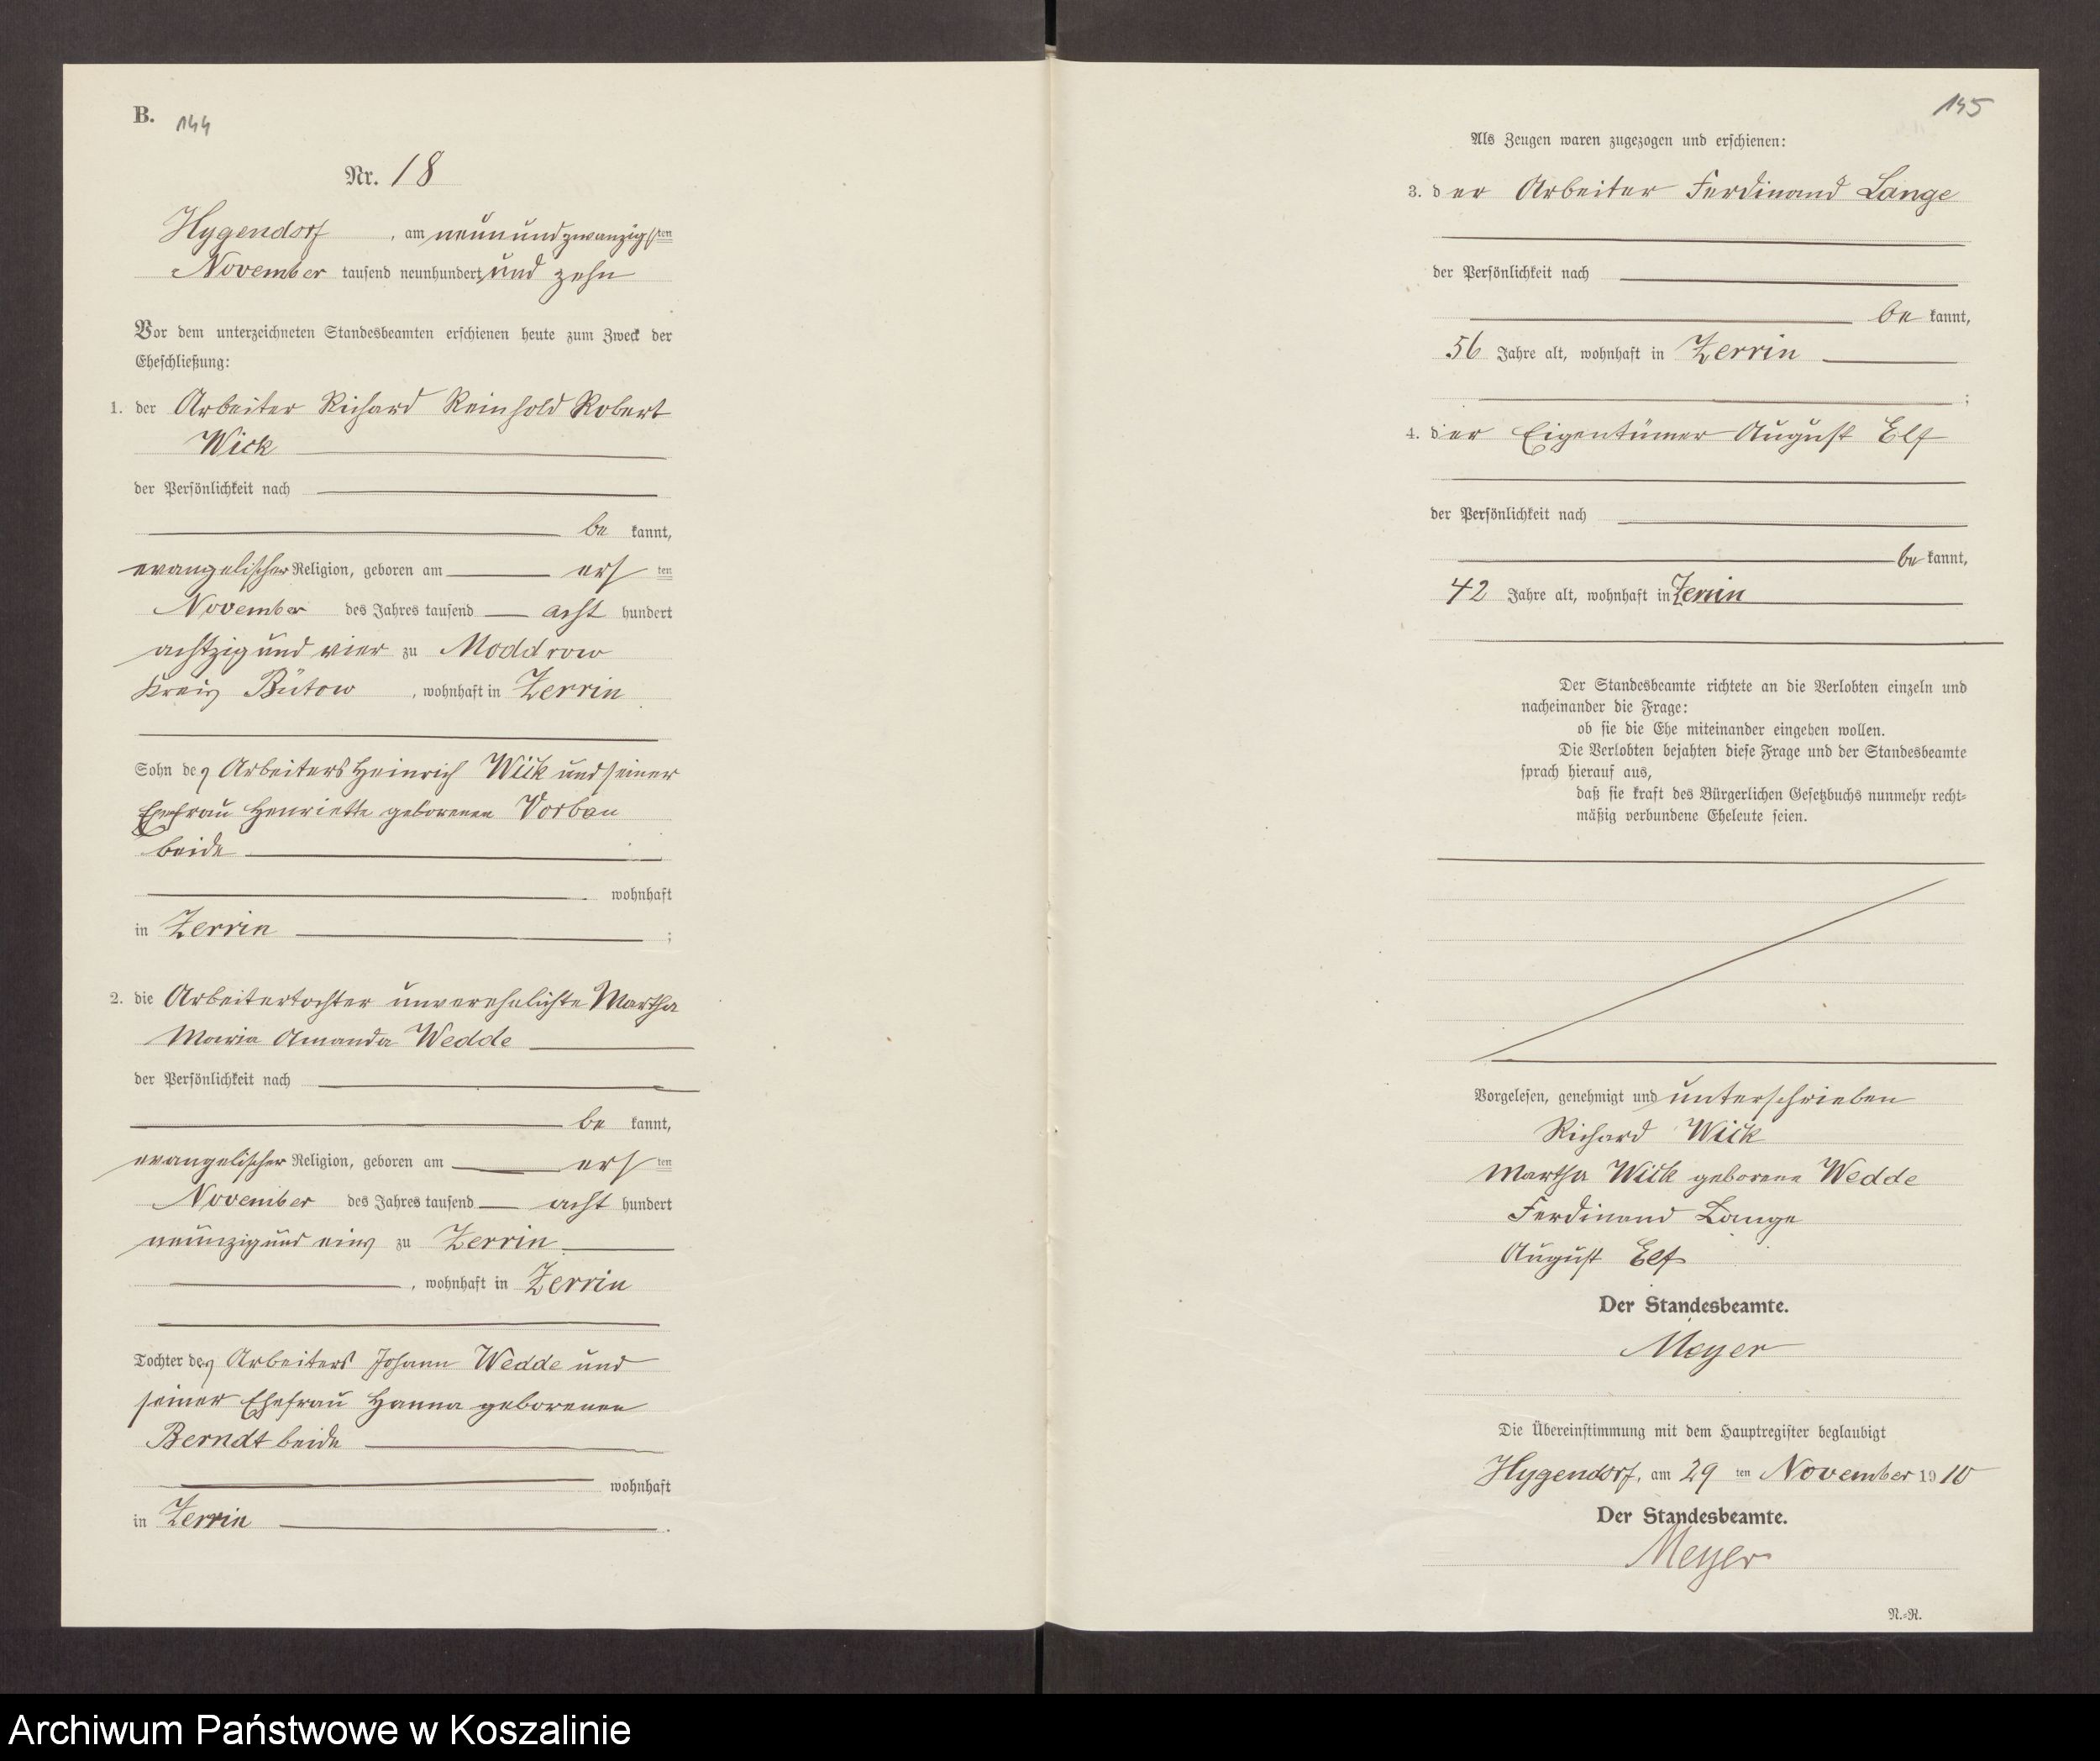 B. 144
Nr. 18
Hygendorf, am neunundzwanzigsten
November tausend neunhundert und zehn
Vor dem unterzeichneten Standesbeamten erschienen heute zum Zweck der
Eheschließung:
1. der Arbeiter Richard Reinhold Robert
Wick
der Persönlichkeit nach
be kannt,
evangelischer Religion, geboren am ersten
November des Jahres tausend acht hundert
achtzig und vier zu Moddrow
Kreis Bütow, wohnhaft in Zerrin
Sohn des Arbeiters Heinrich Wick und seiner
Ehefrau Henriette geborenen Vorbau
beide
wohnhaft
in Zerrin ;
2. die Arbeitertochter unverehelichte Martha
Maria Amanda Wedde
der Persönlichkeit nach
be kannt,
evangelischer Religion, geboren am ersten
November des Jahres tausend acht hundert
neunzig und eins zu Zerrin
, wohnhaft in Zerrin
Tochter des Arbeiters Johann Wedde und
seiner Ehefrau Hanna geborenen
Berndt beide
wohnhaft
in Zerrin .
145
Als Zeugen waren zugezogen und erschienen:
3. der Arbeiter Ferdinand Lange
der Persönlichkeit nach
be kannt,
56 Jahre alt, wohnhaft in Zerrin
;
4. der Eigentümer August Elf
der Persönlichkeit nach
be kannt,
42 Jahre alt, wohnhaft in Zerrin
Der Standesbeamte richtete an die Verlobten einzeln und
nacheinander die Frage:
ob sie die Ehe miteinander eingehen wollen.
Die Verlobten bejahten diese Frage und der Standesbeamte
sprach hierauf aus,
daß sie kraft des Bürgerlichen Gesetzbuchs nunmehr recht-
mäßig verbundene Eheleute seien.
Vorgelesen, genehmigt und unterschrieben
Richard Wick
Martha Wick geborene Wedde
Ferdinand Lange
August Elf
Der Standesbeamte.
Meyer
Die Übereinstimmung mit dem Hauptregister beglaubigt
Hygendorf, am 29 ten November 1910
Der Standesbeamte.
Meyer
N.-R.
Archiwum Państwowe w Koszalinie